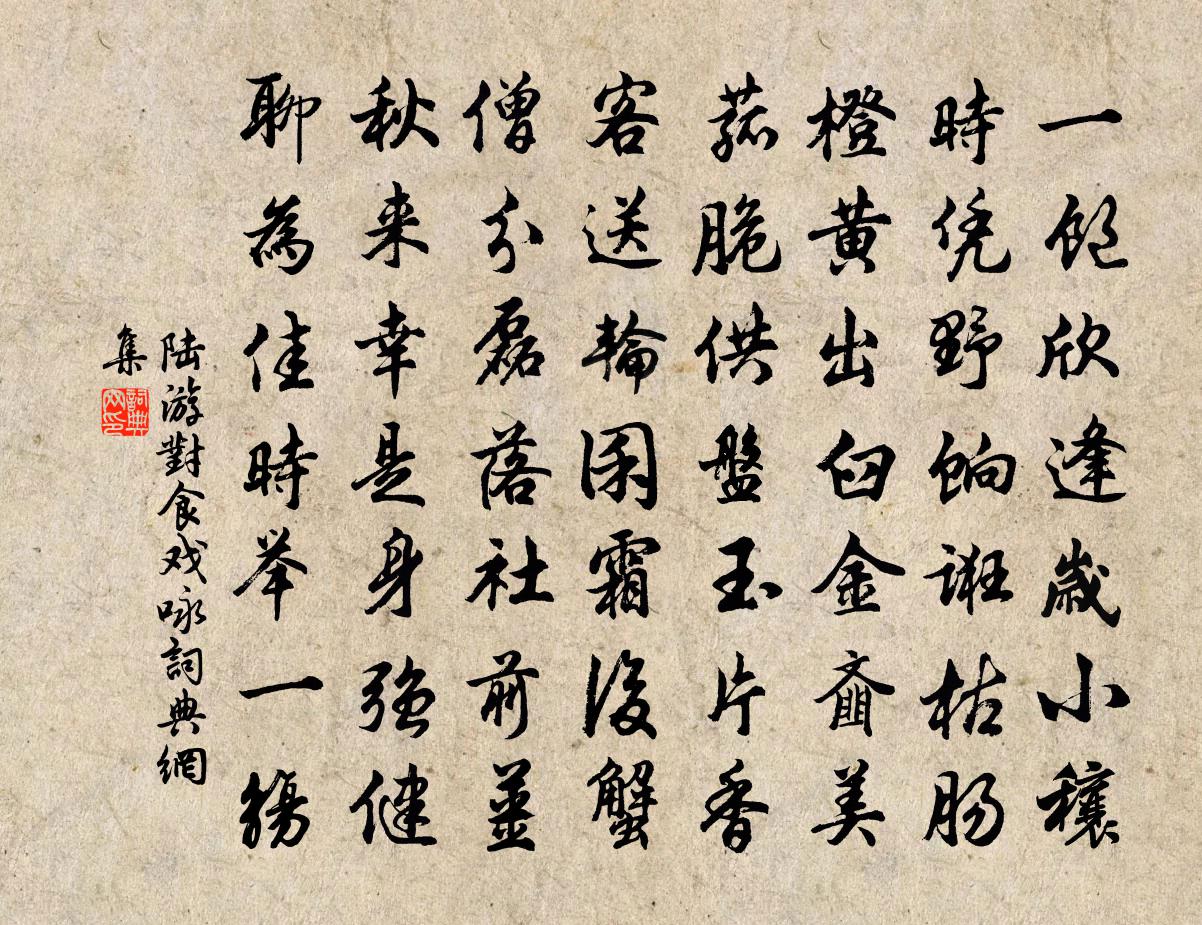 一飽欣逢歲小穰
時凭野餉誑枯肠
橙黄出臼金齑美
菰脆供盤玉片香
客送輪囷霜後蟹
僧分磊落社前薑
秋来幸是身强健
聊為佳時举一觴
陆游對食戏咏詞典網
集
詞典网印